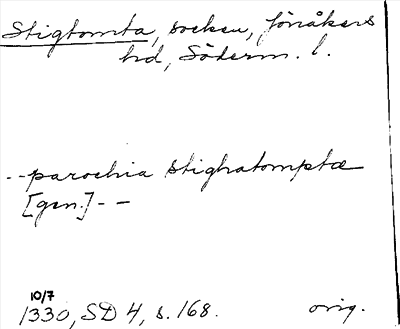 Stigtomta, socken, Jönåkers
hd, Söderm. l.
--parochia Stighatomptæ
[gen.] - -
10/7
1330, SD 4, s. 168. orig.